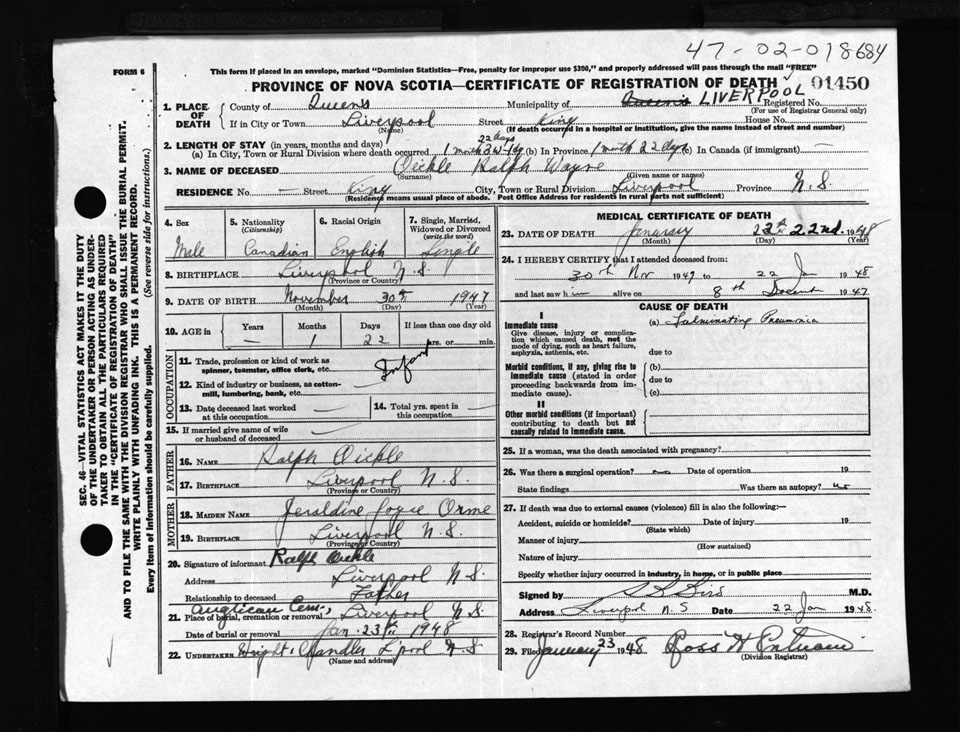 47-02-018684
FORM 6
This form if placed in an envelope, marked "Dominion Statistics—Free, penalty for improper use $300," and properly addressed will pass through the mail "FREE"
PROVINCE OF NOVA SCOTIA—CERTIFICATE OF REGISTRATION OF DEATH 01450
1. PLACE OF DEATH
County of Queens Municipality of Queens LIVERPOOL Registered No.
(For use of Registrar General only)
If in City or Town Liverpool Street King House No.
(Name) (If death occurred in a hospital or institution, give the name instead of street and number)
2. LENGTH OF STAY (in years, months and days) 22 days
(a) In City, Town or Rural Division where death occurred 1 month (b) In Province 1 month 22 days (c) In Canada (if immigrant) —
3. NAME OF DECEASED Oickle Ralph Wayne
(Surname) (Given name or names)
RESIDENCE No. — Street King City, Town or Rural Division Liverpool Province N.S.
(Residence means usual place of abode. Post Office Address for residents in rural parts not sufficient)
4. Sex Male
5. Nationality (Citizenship) Canadian
6. Racial Origin English
7. Single, Married, Widowed or Divorced (write the word) Single
8. BIRTHPLACE Liverpool N.S.
(Province or Country)
9. DATE OF BIRTH November 30th 1947
(Month) (Day) (Year)
10. AGE in Years Months Days If less than one day old
— 1 22 hrs. or min.
OCCUPATION
11. Trade, profession or kind of work as spinner, teamster, office clerk, etc. Infant
12. Kind of industry or business, as cotton-mill, lumbering, bank, etc.
13. Date deceased last worked at this occupation —
14. Total yrs. spent in this occupation —
15. If married give name of wife or husband of deceased —
FATHER
16. NAME Ralph Oickle
17. BIRTHPLACE Liverpool N.S.
(Province or Country)
MOTHER
18. MAIDEN NAME Jeraldine Joyce Orme
19. BIRTHPLACE Liverpool N.S.
(Province or Country)
20. Signature of informant Ralph Oickle
Address Liverpool N.S.
Relationship to deceased Father
Anglican Cem.,
21. Place of burial, cremation or removal Liverpool N.S.
Date of burial or removal Jan. 23rd 1948
22. UNDERTAKER Wright, Chandler L'pool N.S.
(Name and address)
MEDICAL CERTIFICATE OF DEATH
23. DATE OF DEATH January 22nd. 1948
(Month) (Day) (Year)
24. I HEREBY CERTIFY that I attended deceased from:
30th Nov 1947 to 22 Jan 1948
and last saw him alive on 8th 1947
CAUSE OF DEATH
I
Immediate cause (a) Fulminating Pneumonia
Give disease, injury or complication which caused death, not the mode of dying, such as heart failure, asphyxia, asthenia, etc. due to
Morbid conditions, if any, giving rise to immediate cause (stated in order proceeding backwards from immediate cause). (b)
due to
(c)
II
Other morbid conditions (if important) contributing to death but not causally related to immediate cause.
25. If a woman, was the death associated with pregnancy?
26. Was there a surgical operation? no Date of operation 19
State findings Was there an autopsy? no
27. If death was due to external causes (violence) fill in also the following:—
Accident, suicide or homicide? Date of injury 19
(State which)
Manner of injury
(How sustained)
Nature of injury
Specify whether injury occurred in industry, in home, or in public place
Signed by Bird M.D.
Address Liverpool N.S Date 22 Jan 1948.
28. Registrar's Record Number
29. Filed January 23 1948 Ross H
(Division Registrar)
SEC. 46 – VITAL STATISTICS ACT MAKES IT THE DUTY
OF THE UNDERTAKER OR PERSON ACTING AS UNDER-
TAKER TO OBTAIN ALL THE PARTICULARS REQUIRED
IN THE "CERTIFICATE OF REGISTRATION OF DEATH"
AND TO FILE THE SAME WITH THE DIVISION REGISTRAR WHO SHALL ISSUE THE BURIAL PERMIT.
WRITE PLAINLY WITH UNFADING INK. THIS IS A PERMANENT RECORD.
Every item of information should be carefully supplied. (See reverse side for instructions.)